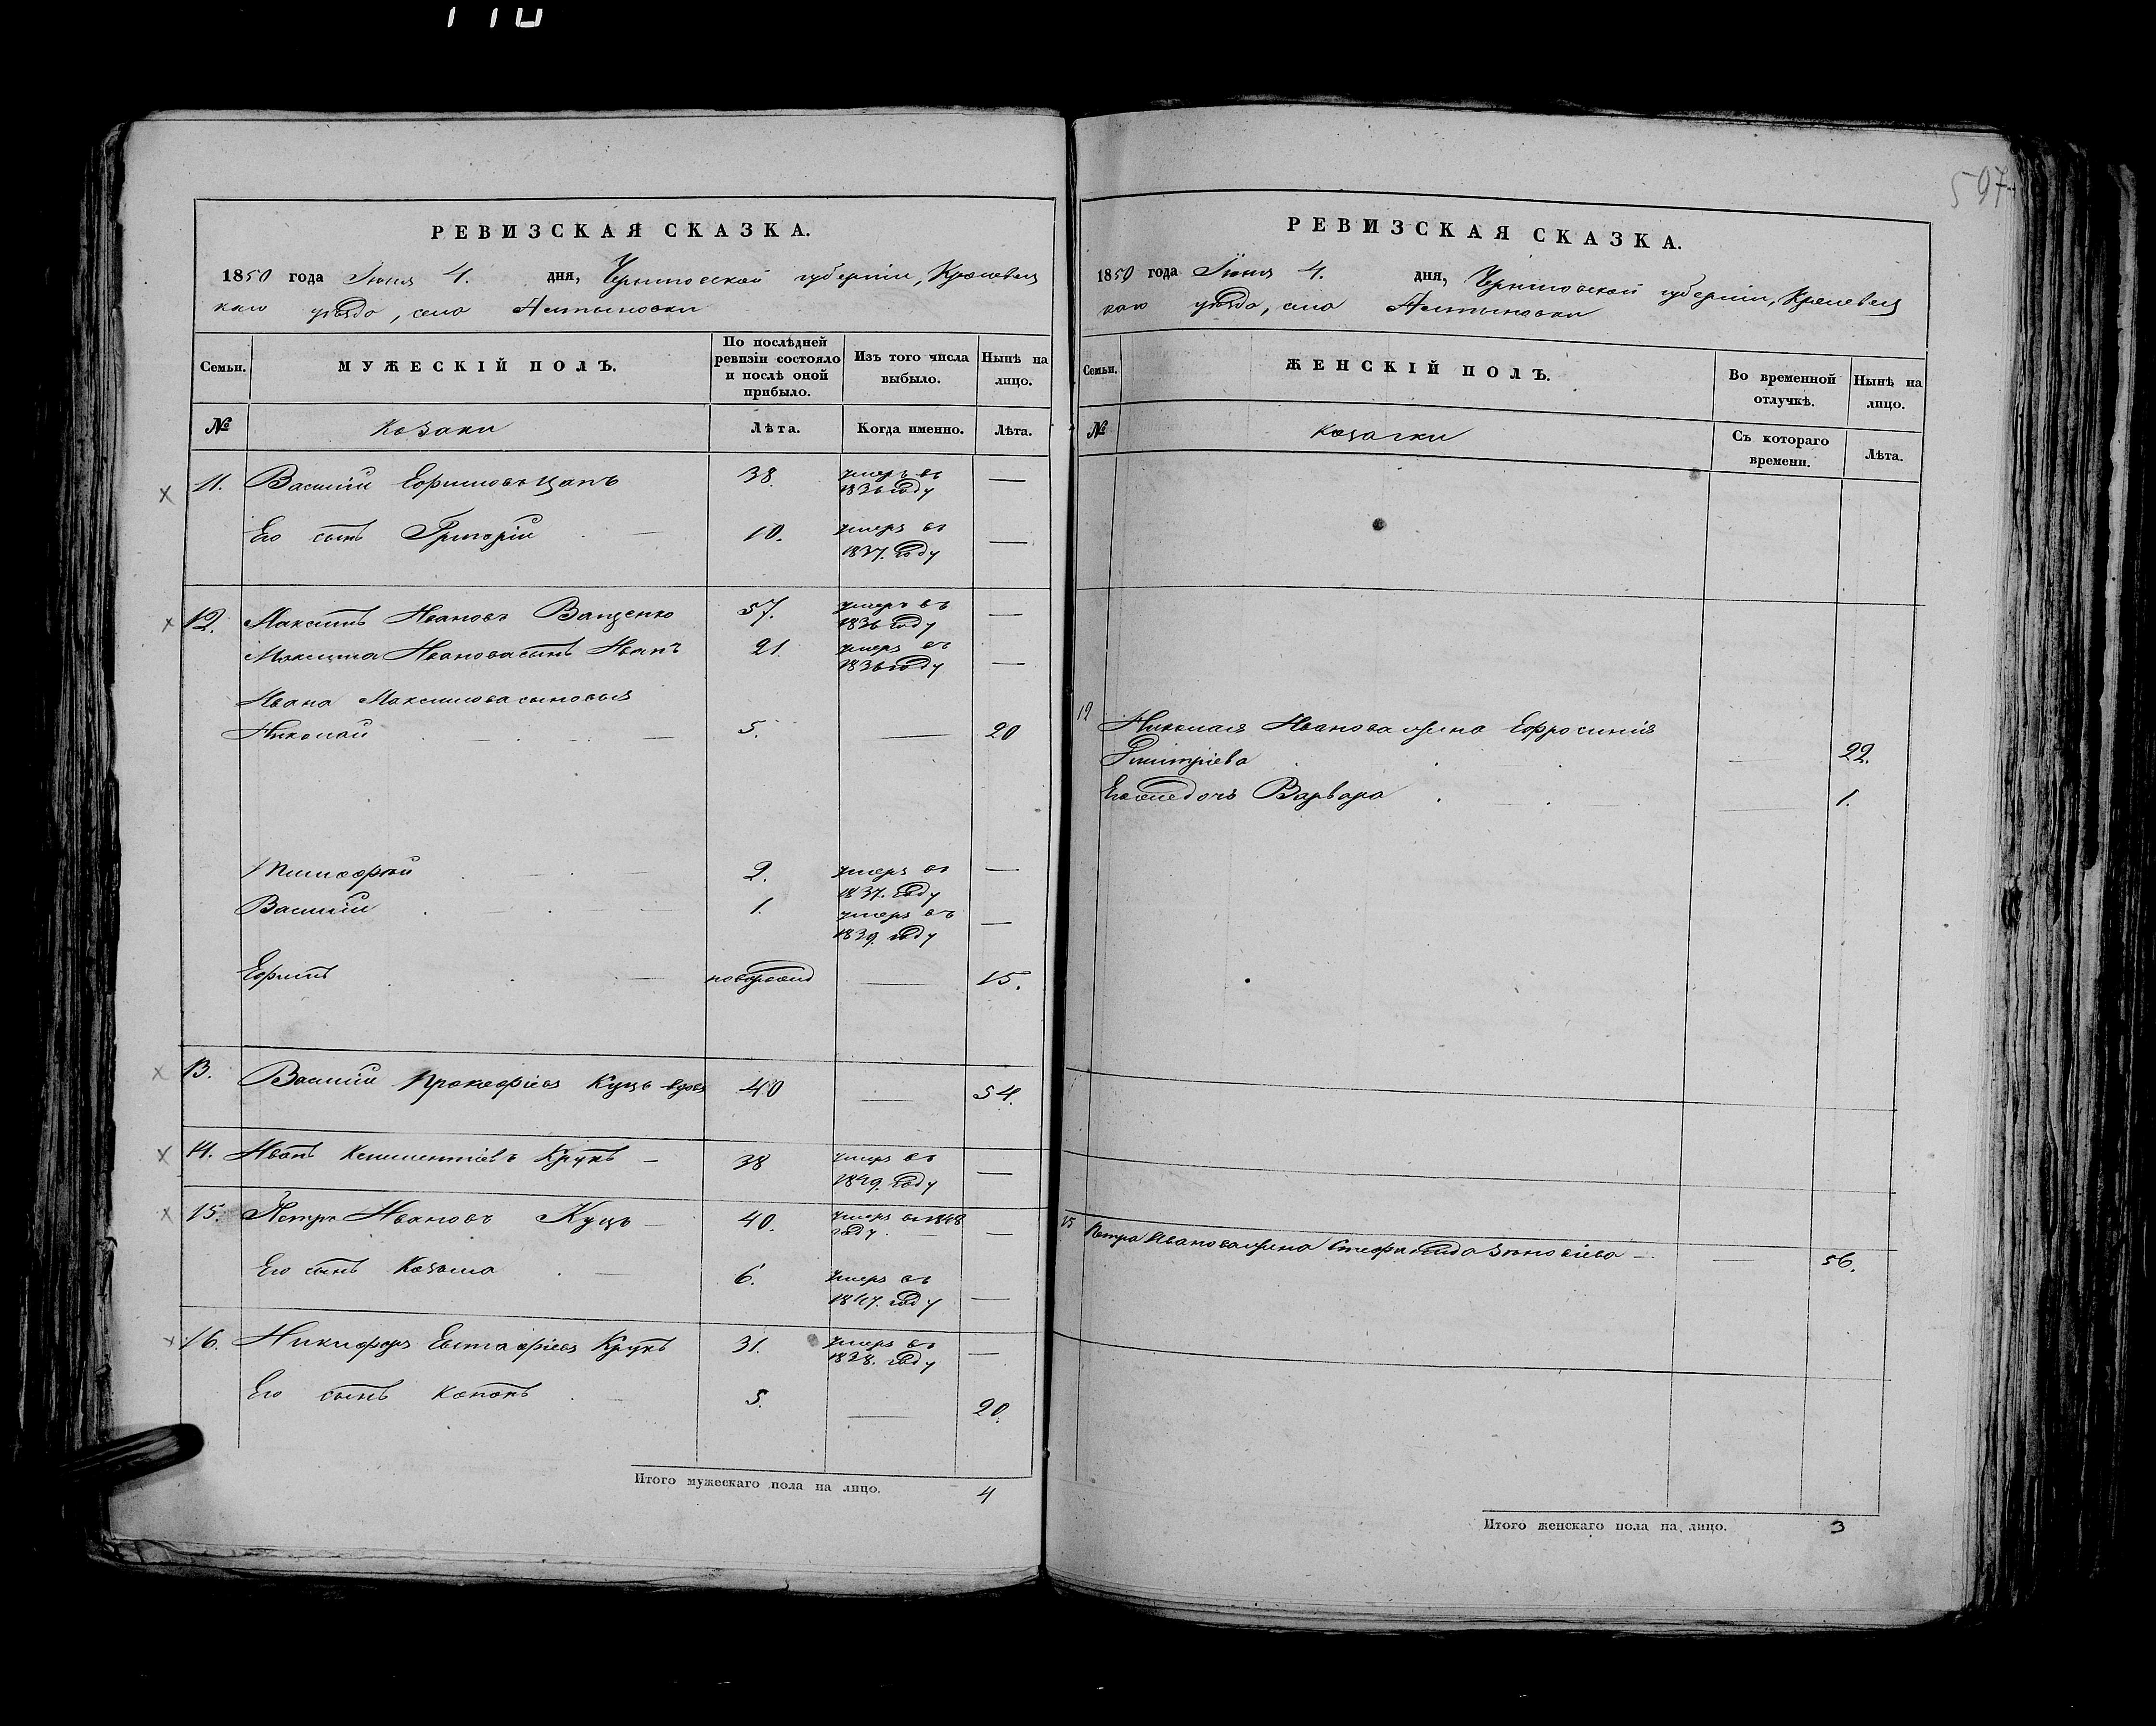 РЕВИЗСКАЯ СКАЗКА.
1850 года Іюня 4. дня, Черниговской губерніи, Кролевец
каго уѣзда, села Алтыновки
Семьи. МУЖЕСКІЙ ПОЛЪ. По послѣдней ревизіи состояло и послѣ оной прибыло. Изъ того числа выбыло. Нынѣ на лицо.
№ Козаки Лѣта. Когда именно. Лѣта.
11. Василій Ефимовъ Цапъ 38. умеръ въ 1836 году —
Его сынъ Григорій — 10. умеръ въ 1837. году —
12. Максимъ Ивановъ Ващенко 57. умеръ въ 1836 году —
Максима Иванова сынъ Иванъ 21. умеръ въ 1836 году —
Ивана Максимова сыновья
Николай — 5. — 20
2. умеръ въ 1837. году —
Василій — 1. умеръ въ 1839. году —
Ефимъ — новорожд — 15.
13. Василій Прокофіевъ Куцъ вдовъ 40 — 54.
14. Иванъ Климентіевъ Крукъ — 38 умеръ въ 1849. году —
15. Петръ Ивановъ Куцъ — 40. умеръ въ 1848 году. —
Его сынъ Козьма — 6. умеръ въ 1847. году —
16. Никифоръ Евстафіевъ Крукъ 31. умеръ въ 1838. году —
Его сынъ Кононъ — 5. — 20.
Итого мужескаго пола на лицо. 4
597
РЕВИЗСКАЯ СКАЗКА.
1850 года Іюня 4. дня, Черниговской губерніи, Кролевец
каго уѣзда, села Алтыновки
Семьи. ЖЕНСКІЙ ПОЛЪ. Во временной отлучкѣ. Нынѣ на лицо.
№ Козачки Съ котораго времени. Лѣта.
12 Николая Иванова жена Ефросинія
Дмитріева — 22.
Варвара — 1.
15 Петра Иванова жена Зѣновіева — — 56.
Итого женскаго пола на лицо. 3